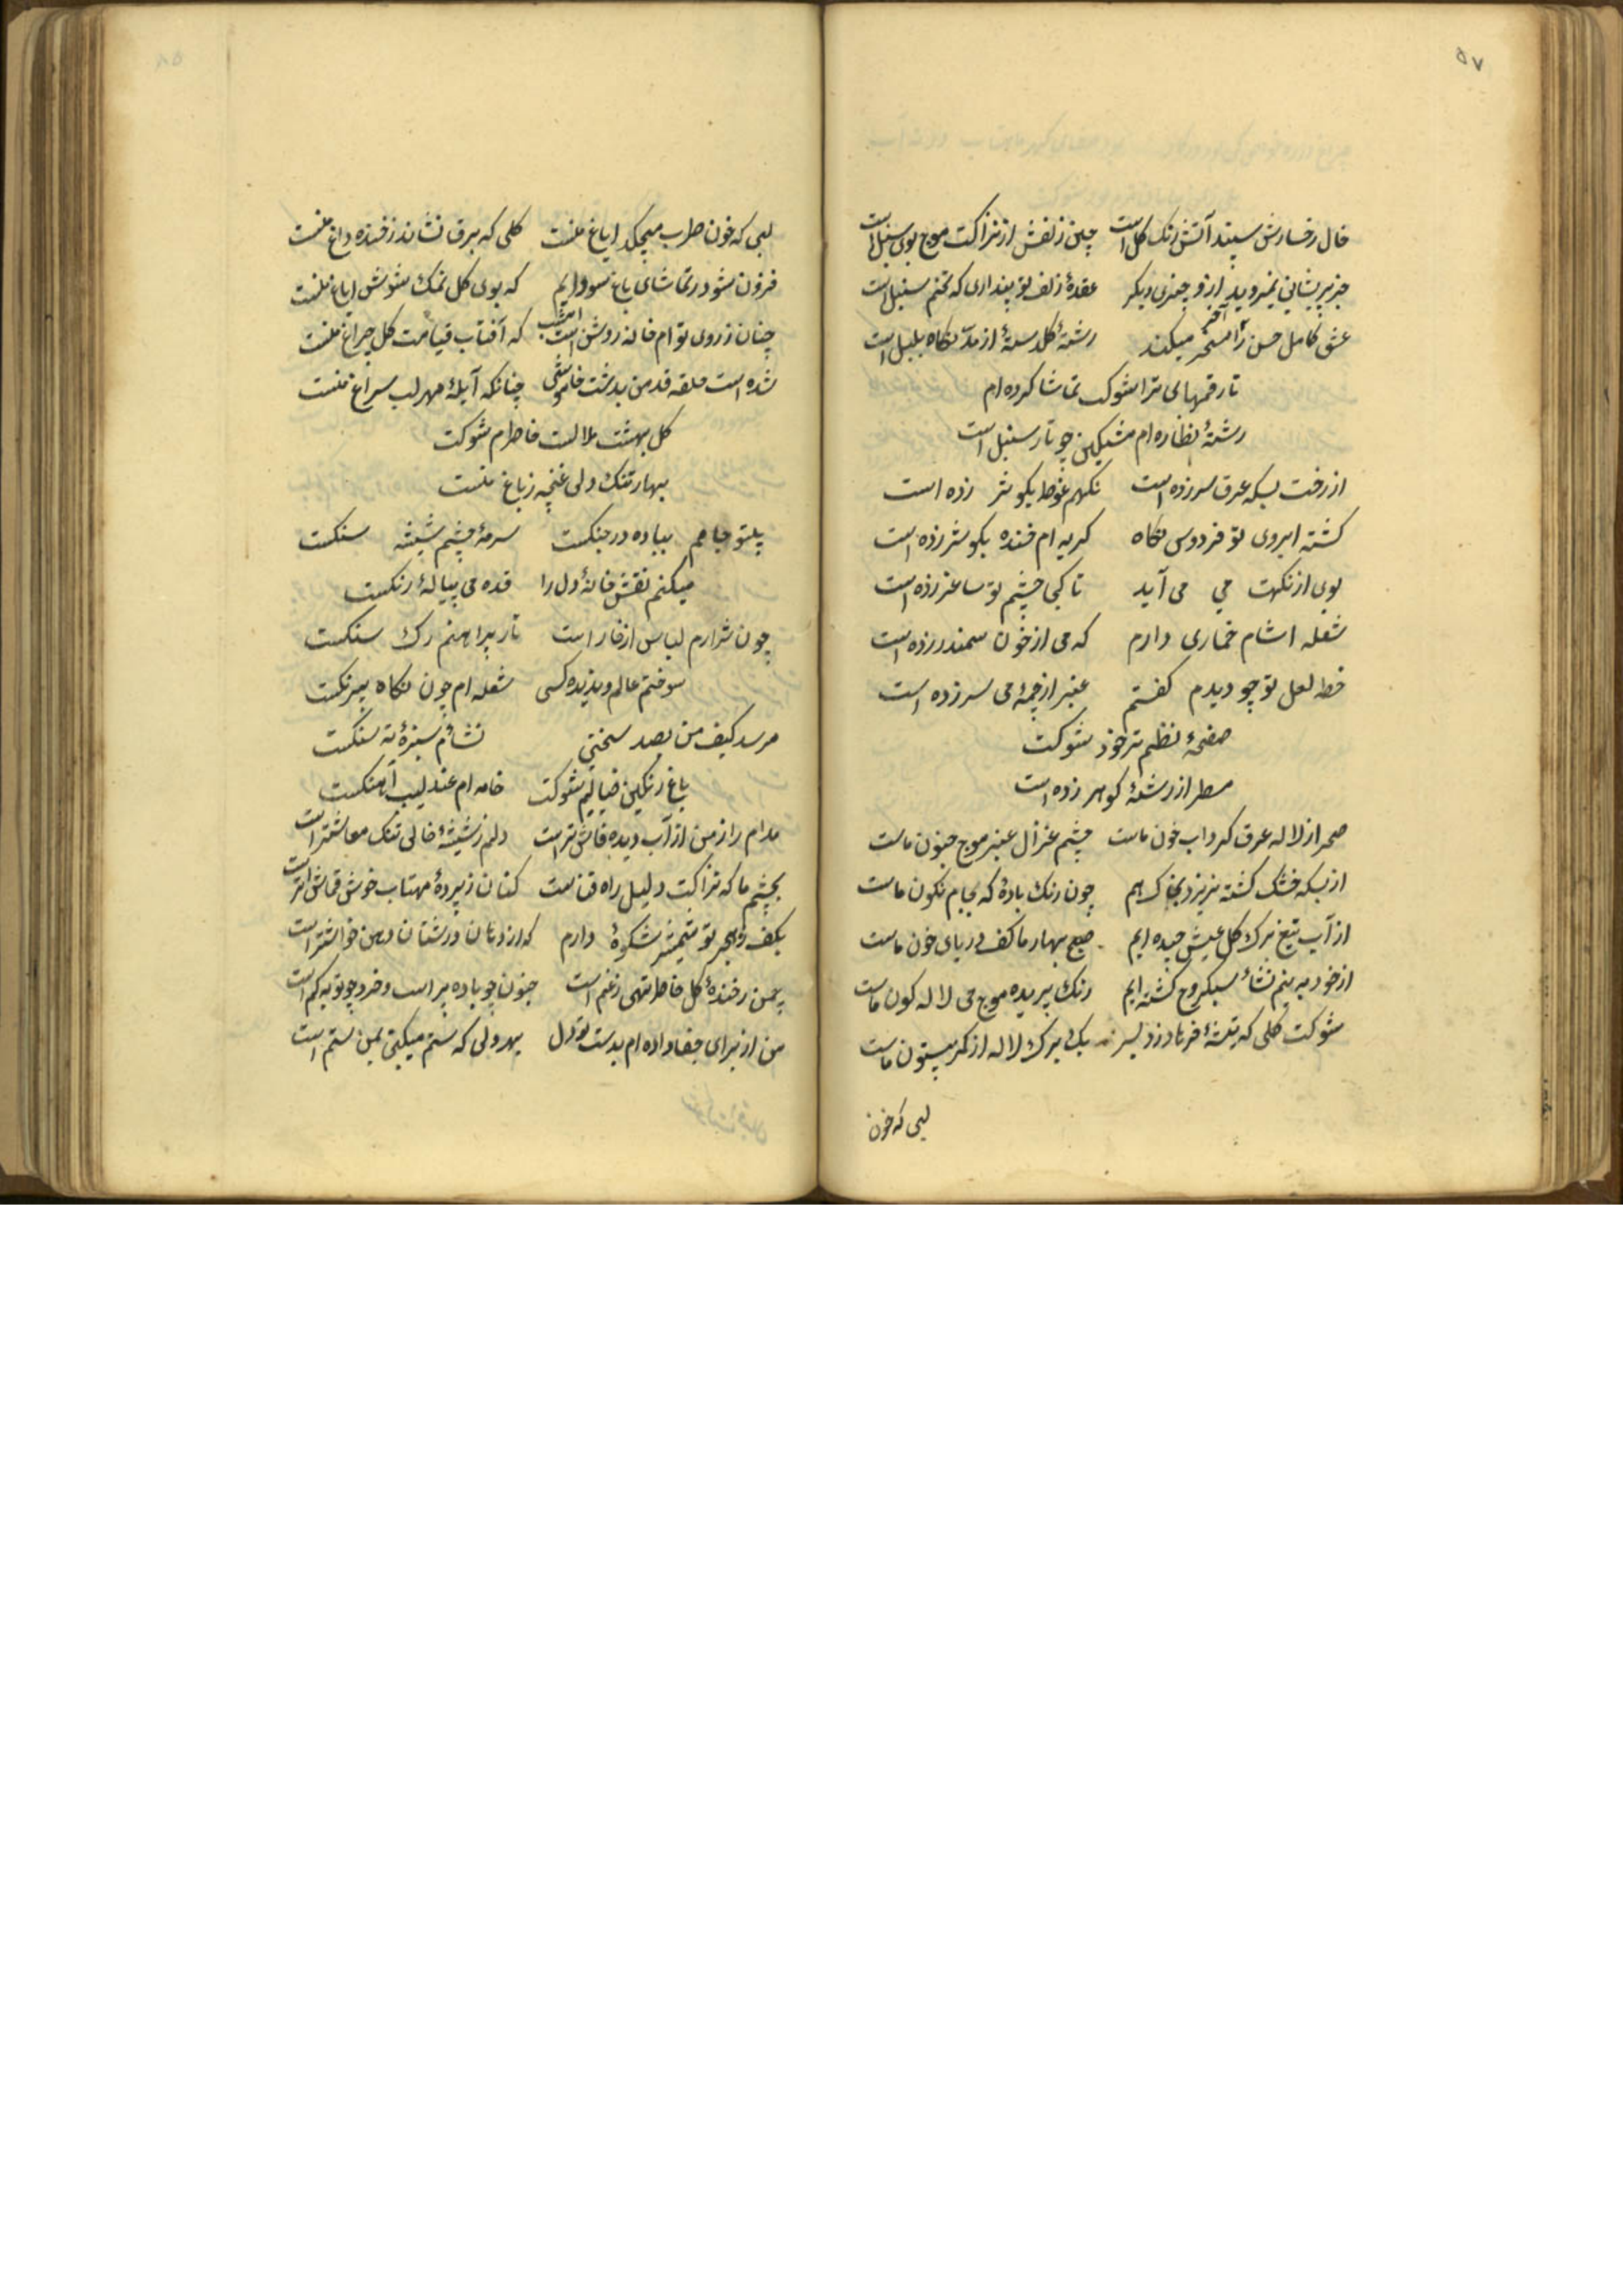 ۵۷
خال رخسارش سپند آتش رنک کل است چین زلفش از نزاکت موج بوی سنبل است
جز پریشانی نمیروید ازو چیزی دیکر عقدهٔ زلف تو پنداری که تخم سنبل است
عشق کامل حسن را آخر مسخر میکند رشتهٔ کلدستهٔ از مد نکاه بلبل است
تا رقمهای ترا شوکت تماشا کرده ام
رشتهٔ نظاره ام مشکین چو تار سنبل است
از رخت بسکه عرق سر زده است نکهم غوطه بکوثر زده است
کشته ابروی تو فردوس نکاه کریه ام خنده بکوثر زده است
بوی از نکهت می می آید تا کی چشم تو ساغر زده است
شعله اشام خماری دارم که می از خون سمندر زده است
خط لعل تو چو دیدم کفتم عنبر از چمهٔ می سر زده است
صفحهٔ نظم ترخود شوکت
مسطر از رشتهٔ کوهر زده است
صحرا ز لاله عرق کرداب خون ماست چشم غزال عنبر موج جنون ماست
از بسکه خشک کشته نریزد بخاک هم چون رنک باده که بجام نکون ماست
از آب تیغ برک کل عیش چیده ایم صبح بهار ما کف دریای خون ماست
از خود به نیم نشأ سبکروح کشته ایم رنک پریده موج می لاله کون ماست
شوکت کلی که تیشهٔ فرهاد زد بسر یک برک لاله از کمر بیستون ماست
لبی که خون
۵۸
لبی که خون طرب میچکد ایاغ منست کلی که برق نشاند ز خنده داغ منست
فزون شود ز تماشای باغ سودایم که بوی کل نمک شورش ایاغ منست
چنان ز روی تو ام خانه روشن است امشب که آفتاب قیامت کل چراغ منست
شده است حلقه قد من بدشت خاموشی چنانکه آبلهٔ مهر لب سراغ منست
کل بهشت ملالت خاطرم شوکت
بهار تنک دلی غنچه ز باغ منست
بیتو جامم بباده در جنکست سرمهٔ چشم شیشه سنکست
میکنم نقش خانهٔ دل را قده می پیالهٔ رنکست
چون شرارم لباس از خار است تار پیراهنم رک سنکست
سوختم عالم و ندیده کسی شعله ام چون نکاه بیرنکست
مرسد کیف من بصد سختی نشاءم سبزهٔ ته سنکست
باغ رنکین خیالیم شوکت خامه ام عندلیب آهنکست
مدام راز من از آب دیده فاش تر است دلم ز شیشهٔ خالی تنک معاشتر است
بچشم ما که نزاکت دلیل راه فناست کتان ز پردهٔ مهتاب خوش قماش تر است
بکف ز هجر تو شمشیر شکوهٔ دارم که از دهان درشتان دمن خراشتر است
چمن ز خندهٔ کل خاطر تهی ز غم است جنون چو باده پر است و خرد چو توبه کم است
من از برای جفا داده ام بدست تو دل بهر دلی که ستم میکنی بمن ستم است